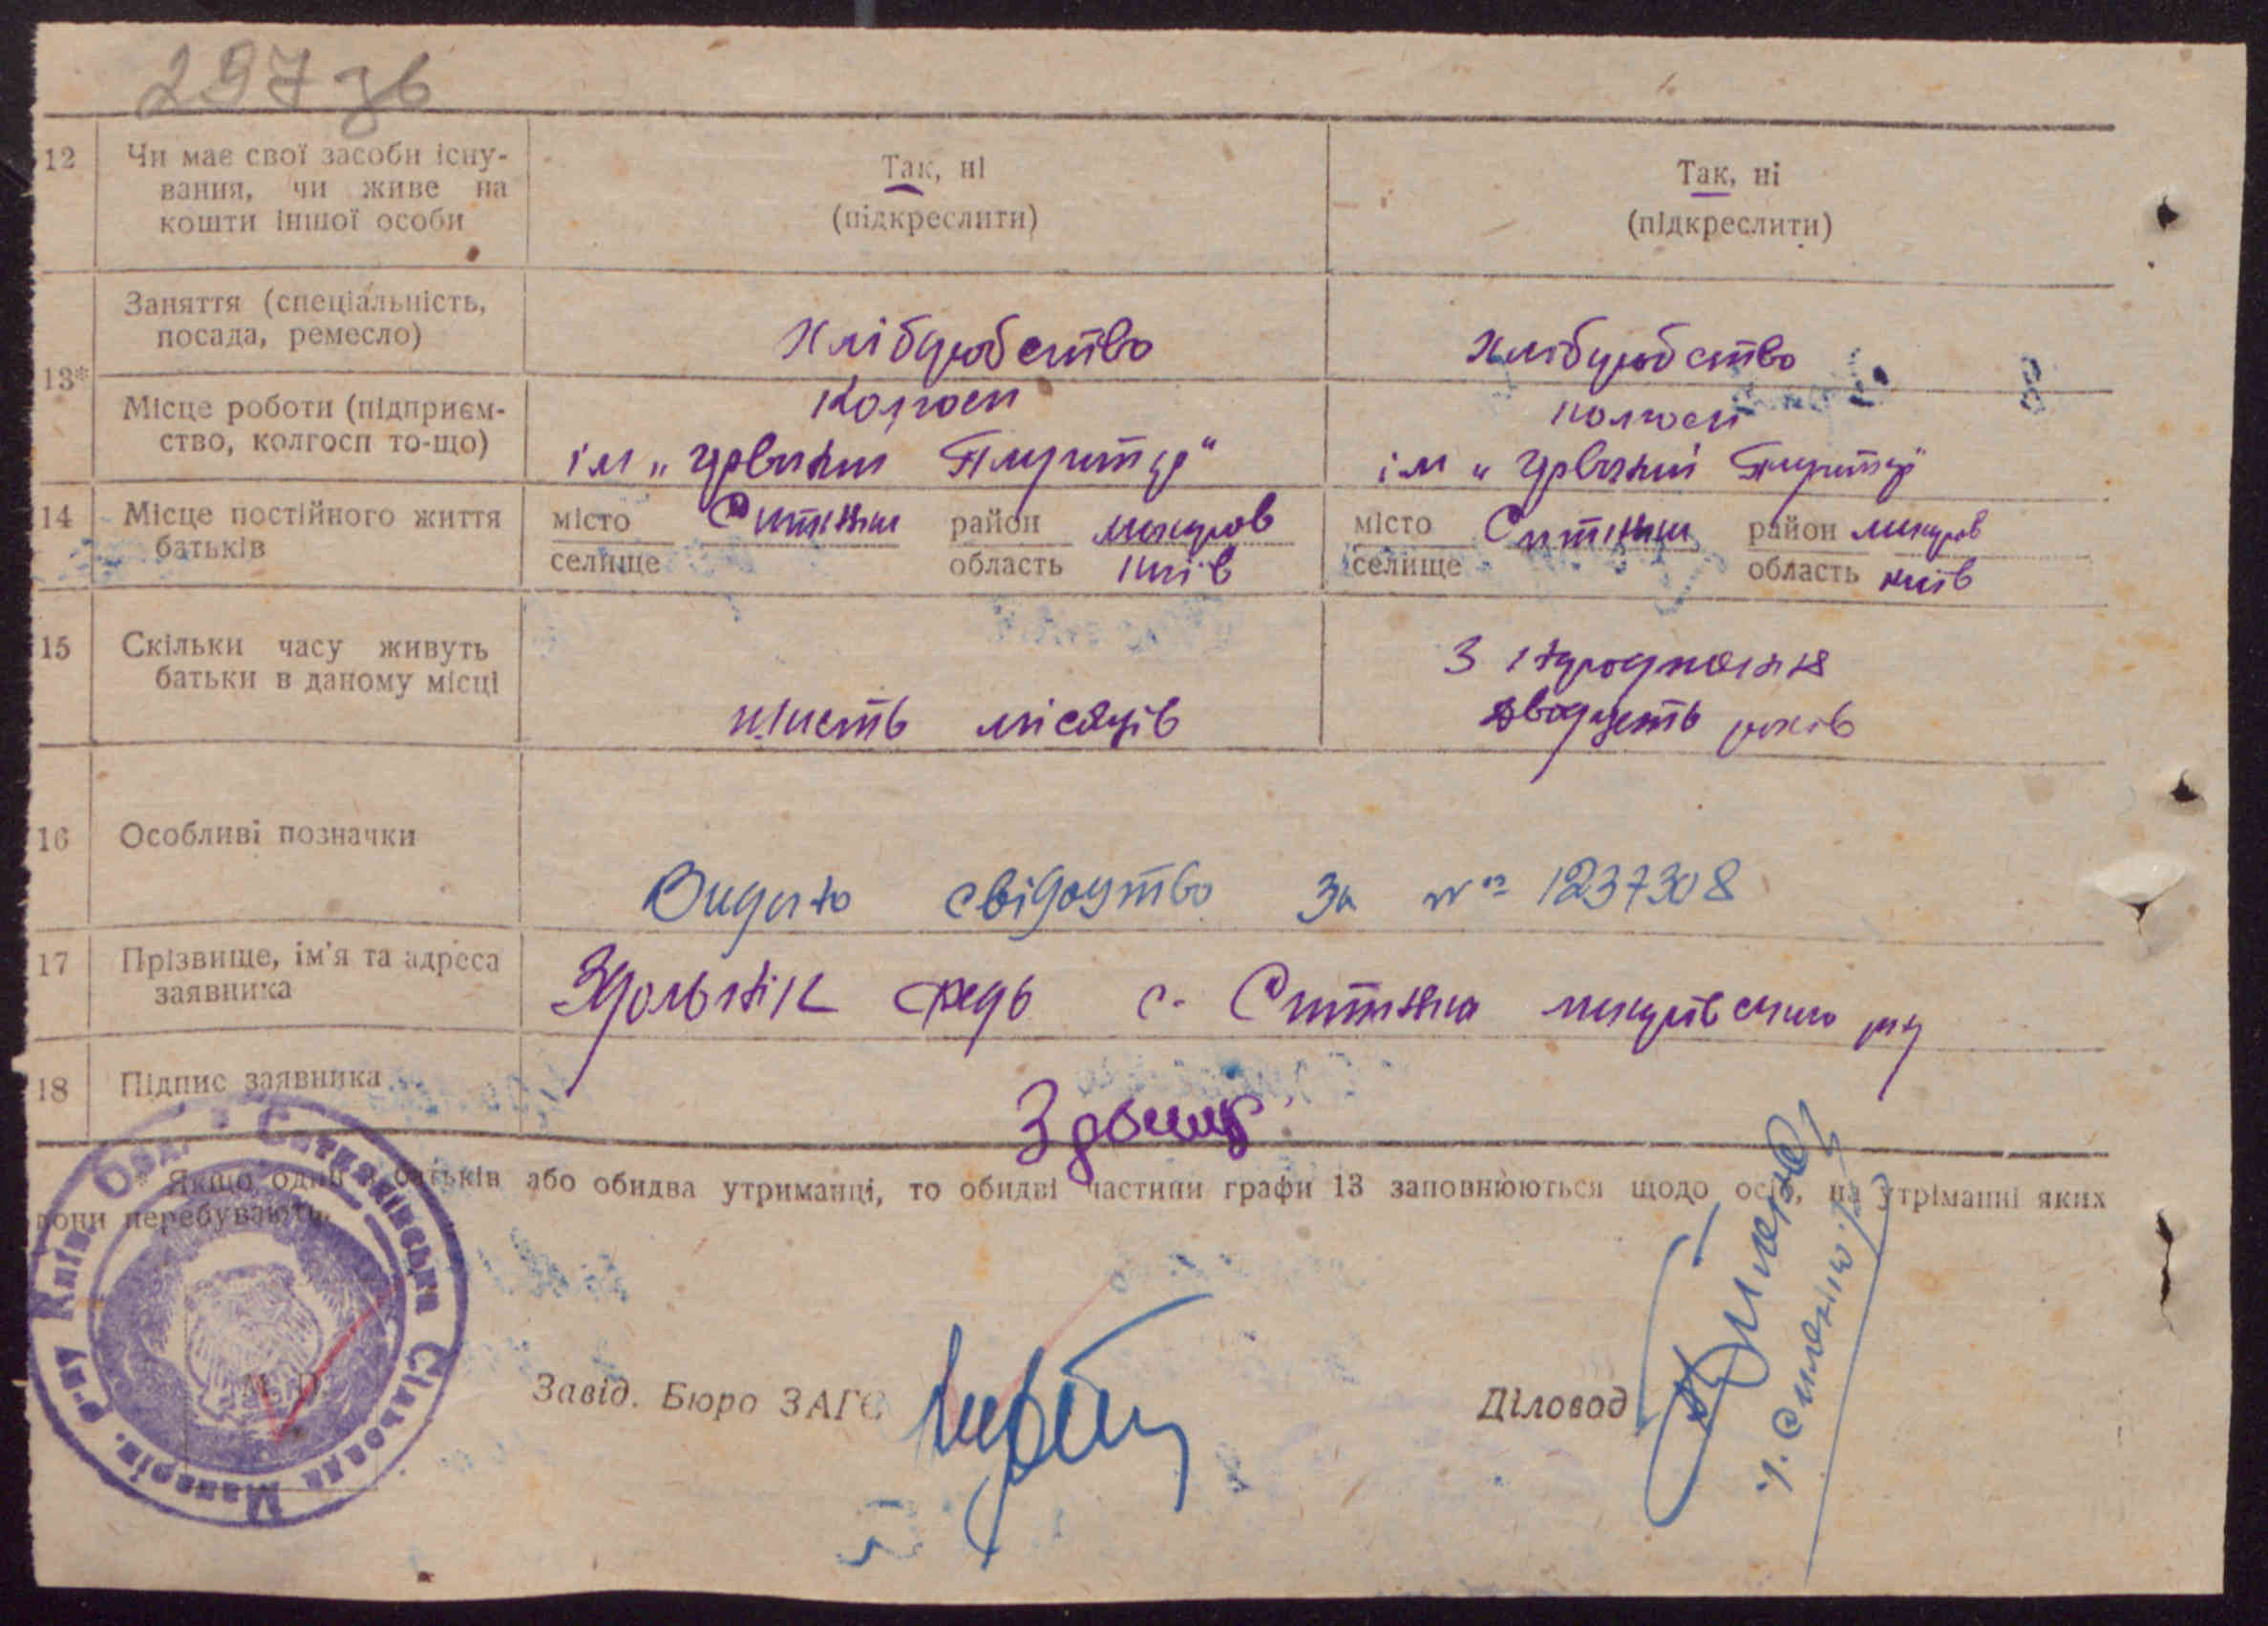 297 зв
12 Чи має свої засоби існу-
вання, чи живе на
кошти іншої особи
Так, ні
(підкреслити)
Так, ні
(підкреслити)
13* Заняття (спеціальність,
посада, ремесло)
Хлібуробство
Хлібуробство
Місце роботи (підприєм-
ство, колгосп то-що)
Колгосп
ім „
колгосп
ім „
14 Місце постійного життя
батьків
місто
селище
Ситняки
район
область
макаров
київ
місто
селище
Ситняки
район
область
макаров
київ
15 Скільки часу живуть
батьки в даному місці
шисть місяців
З
двадцеть років
16 Особливі позначки
Видано свідоцтво За № 1237308
17 Прізвище, ім'я та адреса
заявника
с. Ситняки макарівского р-ну
18 Підпис заявника
* Якщо один з батьків або обидва утриманці, то обидві частини графи 13 заповнюються щодо осіб, на утріманні яких
вони перебувають.
Ситняківська Сільрада Макарів. р-ну Київ. Обл.
М. П.
Завід. Бюро ЗАГС
Діловод